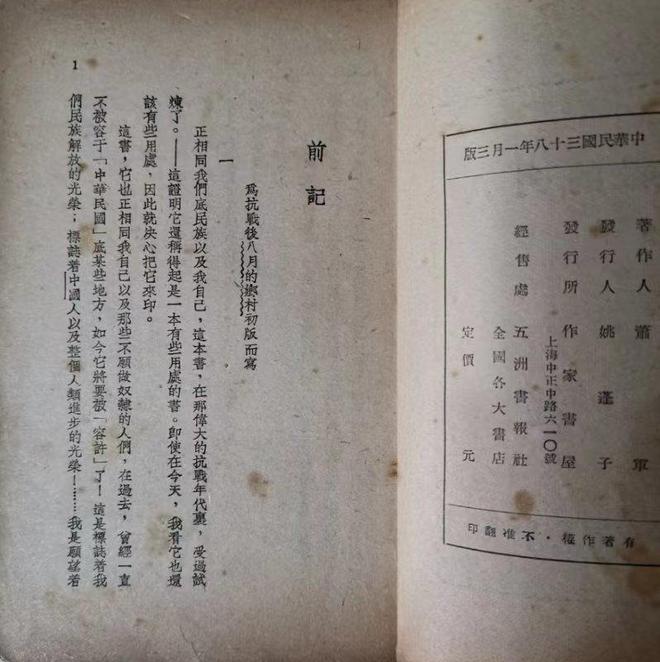 中華民國三十八年一月三版
著作人 蕭軍
發行人 姚蓬子
發行所 作家書屋
上海中正中路六一〇號
經售處 五洲書報社
全國各大書店
定價 元
有著作權・不准翻印
前記
爲抗戰後八月的鄉村初版而寫
一
正相同我們底民族以及我自己，這本書，在那偉大的抗戰年代裏，受過試
煉了。——這證明它還稱得起是一本有些用處的書。即使在今天，我看它也還
該有些用處，因此就決心把它來印。
這書，它也正相同我自己以及那些不願做奴隸的人們，在過去，曾經一直
不被容于「中華民國」底某些地方，如今它將要被「容許」了！這是標誌着我
們民族解放的光榮；標誌着中國人以及整個人類進步的光榮！……我是願望着
1